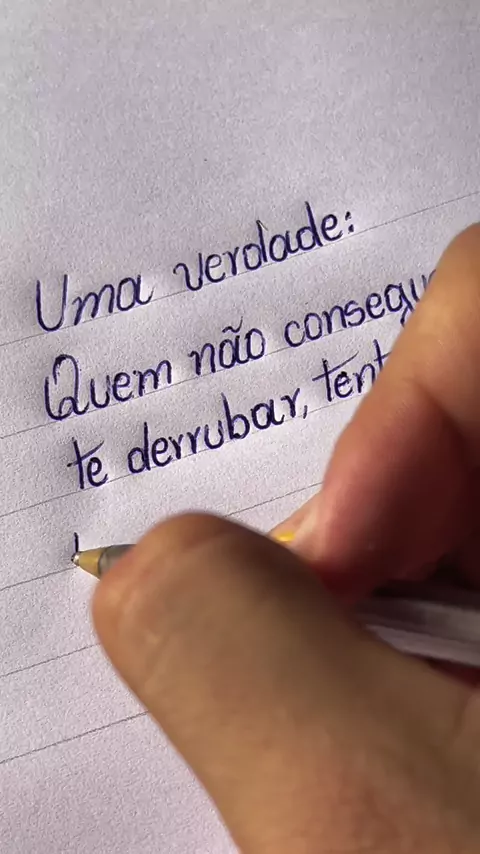 Uma verdade:
Quem não consegu
te derrubar, tent